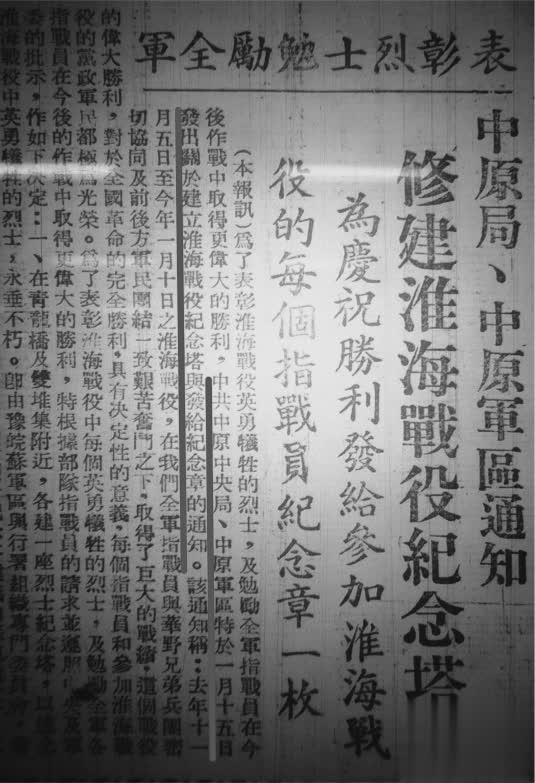 表彰烈士勉勵全軍
中原局、中原軍區通知
修建淮海戰役紀念塔
為慶祝勝利發給參加淮海戰
役的每個指戰員紀念章一枚
(本報訊)爲了表彰淮海戰役英勇犧牲的烈士,及勉勵全軍指戰員在今
後作戰中取得更偉大的勝利,中共中原中央局、中原軍區特於一月十五日
發出關於建立淮海戰役紀念塔與發給紀念章的通知。該通知稱:去年十一
月五日至今年一月十日之淮海戰役,在我們全軍指戰員與華野兄弟兵團密
切協同及前後方軍民團結一致艱苦奮鬥之下,取得了巨大的戰績,這個戰役
的偉大勝利,對於全國革命的完全勝利,具有決定性的意義,每個指戰員和參加淮海戰
役的黨政軍民都極爲光榮。爲了表彰淮海戰役中每個英勇犧牲的烈士,及勉勵全軍各
指戰員在今後的作戰中取得更偉大的勝利,特根據部隊指戰員的請求並遵照中央及軍
委的批示,作如下決定:一、在青龍橋及雙堆集附近,各建一座烈士紀念塔,以
淮海戰役中英勇犧牲的烈士,永垂不朽。即由豫皖蘇軍區與行署組織專門委員會,